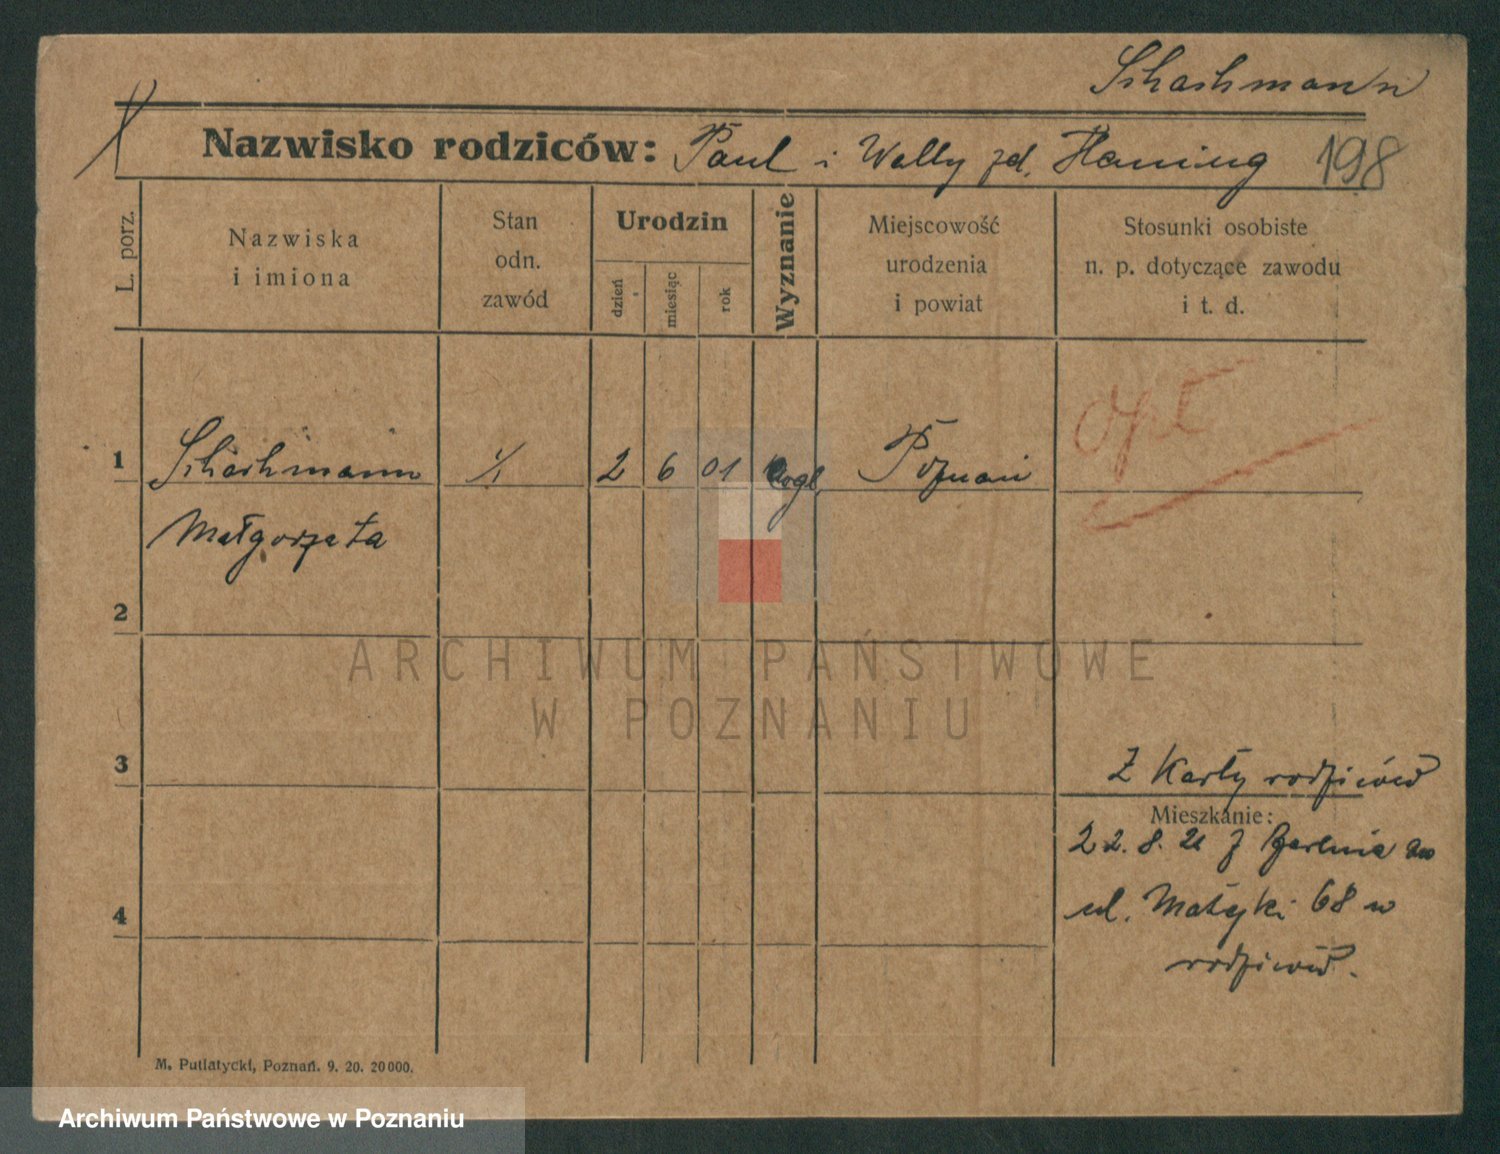 Schachmann
Nazwisko rodziców: Paul i Wally zd. Haning 198
L. porz.
Nazwiska
i imiona
Stan
odn.
zawód
Urodzin
dzień
miesiąc
rok
Wyznanie
Miejscowość
urodzenia
i powiat
Stosunki osobiste
n. p. dotyczące zawodu
i t. d.
opt
1 Schachmann 1/1 2 6 01 Poznań
Małgorzata
2
ARCHIWUM PAŃSTWOWE
W POZNANIU
3
Z Karty rodziców
Mieszkanie:
22. 8. 21 z Berlina
ul. Matejki 68 w
rodziców.
4
M. Putiatycki, Poznań. 9. 20. 20000.
Archiwum Państwowe w Poznaniu